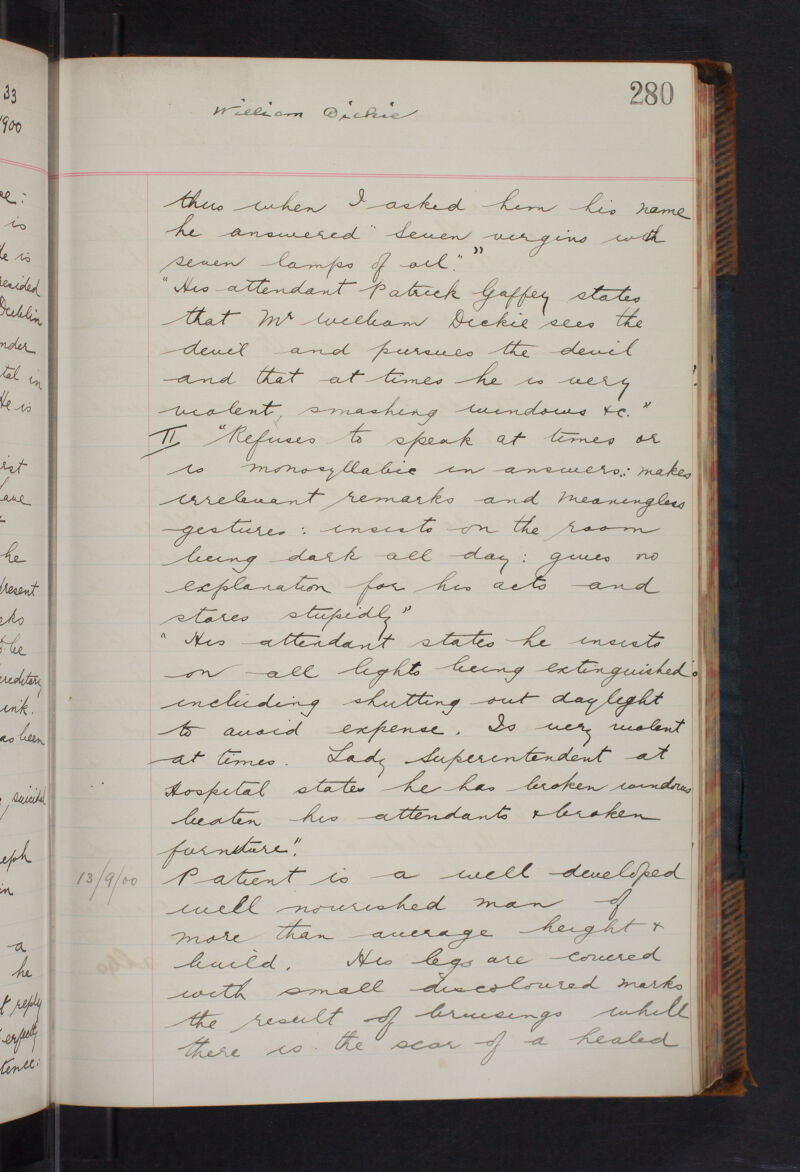 33
1900
280
William Dickie
thus when I asked him his name
he answered "Seven virgins with
seven lamps of oil."”
"His attendant Patrick Gaffey states
that Mr William Dickie sees the
devil and pursues the devil
and that at times he is very
violent, smashing windows &c."
II "Refuses to speak at times or
is monosyllabic in answers: makes
irrelevant remarks and meaningless
gestures: insists on the room
being dark all day: gives no
explanation for his acts and
stares stupidly"
"His attendant states he insists
on all lights being extinguished
including shutting out daylight
to avoid expense. Is very violent
at times. Lady Superintendent at
Hospital states he has broken windows
beaten his attendants & broken
furniture".
13/9/00 Patient is a well developed
well nourished man of
more than average height &
build. His legs are covered
with small discoloured marks
the result of bruisings whilst
there is the scar of a healed